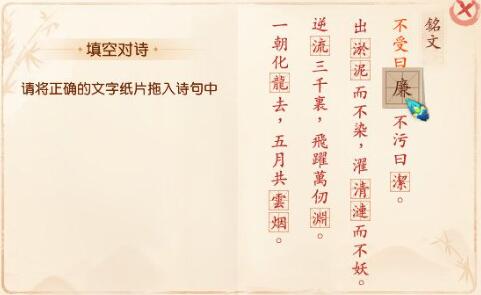 填空对诗
请将正确的文字纸片拖入诗句中
銘文
不受曰廉不污曰潔。
出淤泥而不染，濯清漣而不妖。
逆流三千裏，飛躍萬仞淵。
一朝化龍去，五月共雲烟。